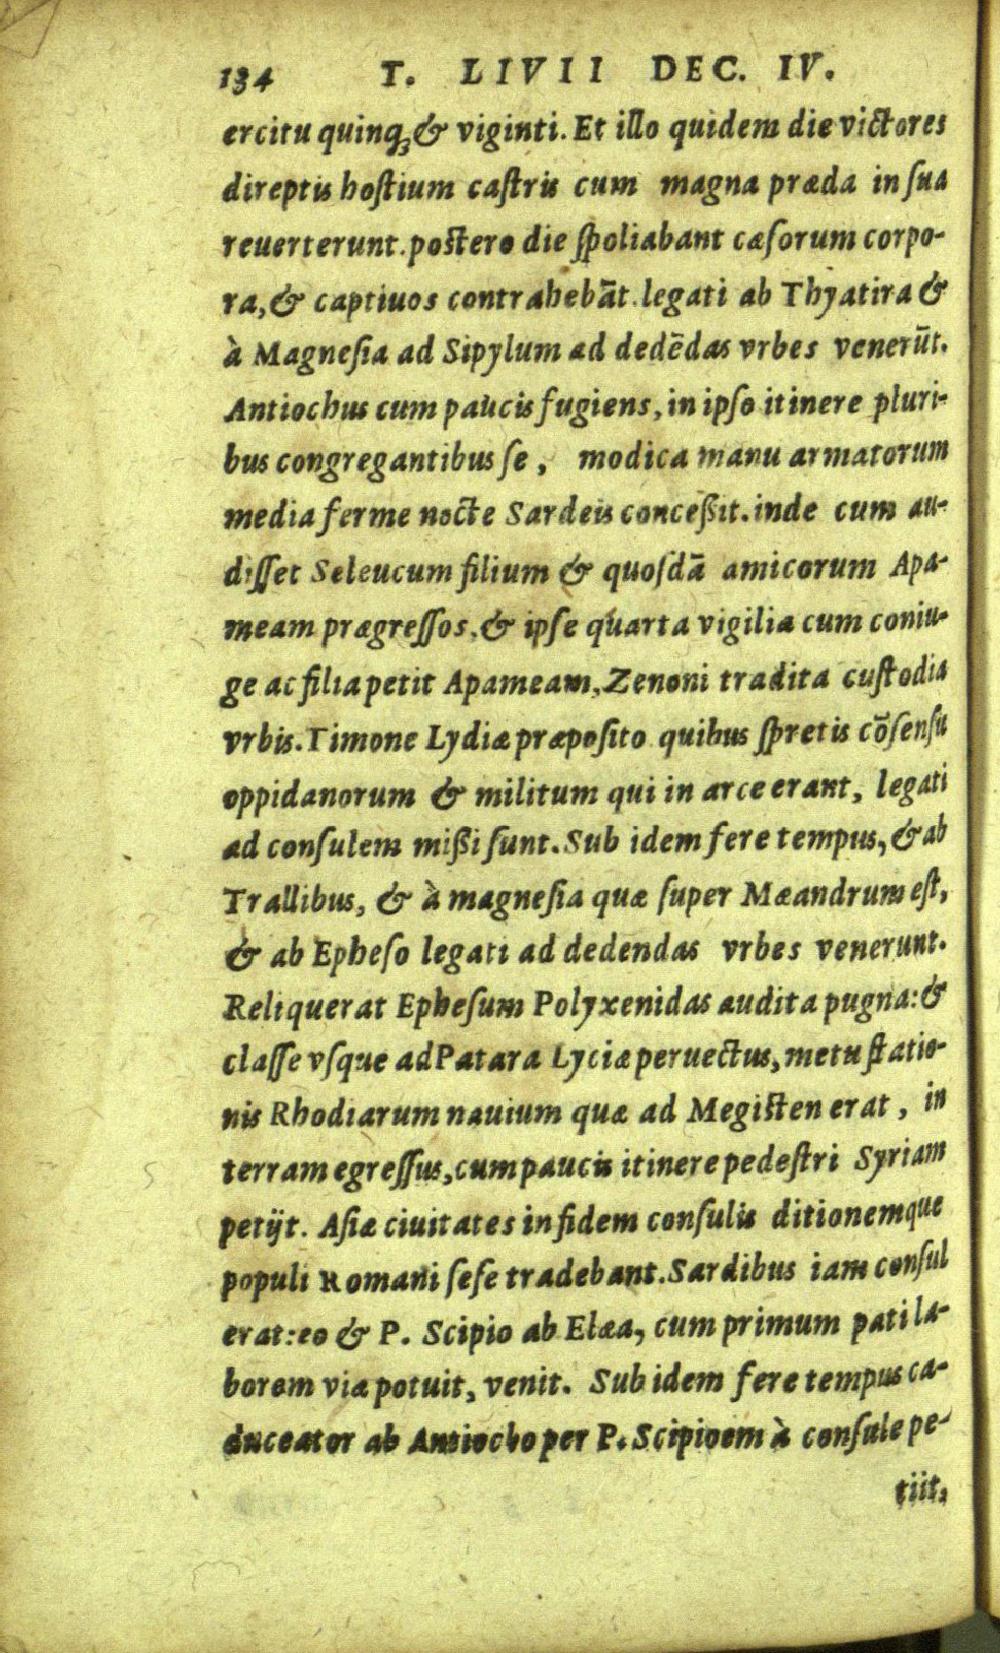 134 T. LIVII DEC. IV.
ercitu quinq;& viginti. Et illo quidem die victores
direptis hostium castris cum magna præda in sua
reuerterunt. postero die spoliabant cæsorum corpo-
ra, & captiuos contrahebāt. legati ab Thyatira &
à Magnesia ad Sipylum ad dedēdas vrbes venerūt.
Antiochus cum paucis fugiens, in ipso itinere pluri-
bus congregantibus se, modica manu armatorum
media ferme nocte Sardeis conceßit. inde cum au-
disset Seleucum filium & quosdā amicorum Apa-
meam prægressos, & ipse quarta vigilia cum coniu-
ge ac filia petit Apameam, Zenoni tradita custodia
vrbis. Timone Lydiæ præposito quibus spretis cōsensu
oppidanorum & militum qui in arce erant, legati
ad consulem mißi sunt. Sub idem fere tempus, & ab
Trallibus, & à magnesia quæ super Mæandrum est,
& ab Epheso legati ad dedendas vrbes venerunt.
Reliquerat Ephesum Polyxenidas audita pugna: &
classe vsque ad Patara Lyciæ peruectus, metu statio-
nis Rhodiarum nauium quæ ad Megisten erat, in
terram egressus, cum paucis itinere pedestri Syriam
petijt. Asiæ ciuitates in fidem consulis ditionemque
populi Romani sese tradebant. Sardibus iam consul
erat: eo & P. Scipio ab Elæa, cum primum pati la-
borem viæ potuit, venit. Sub idem fere tempus ca-
duceator ab Antiocho per P. Scipioem à consule pe-
tiit,